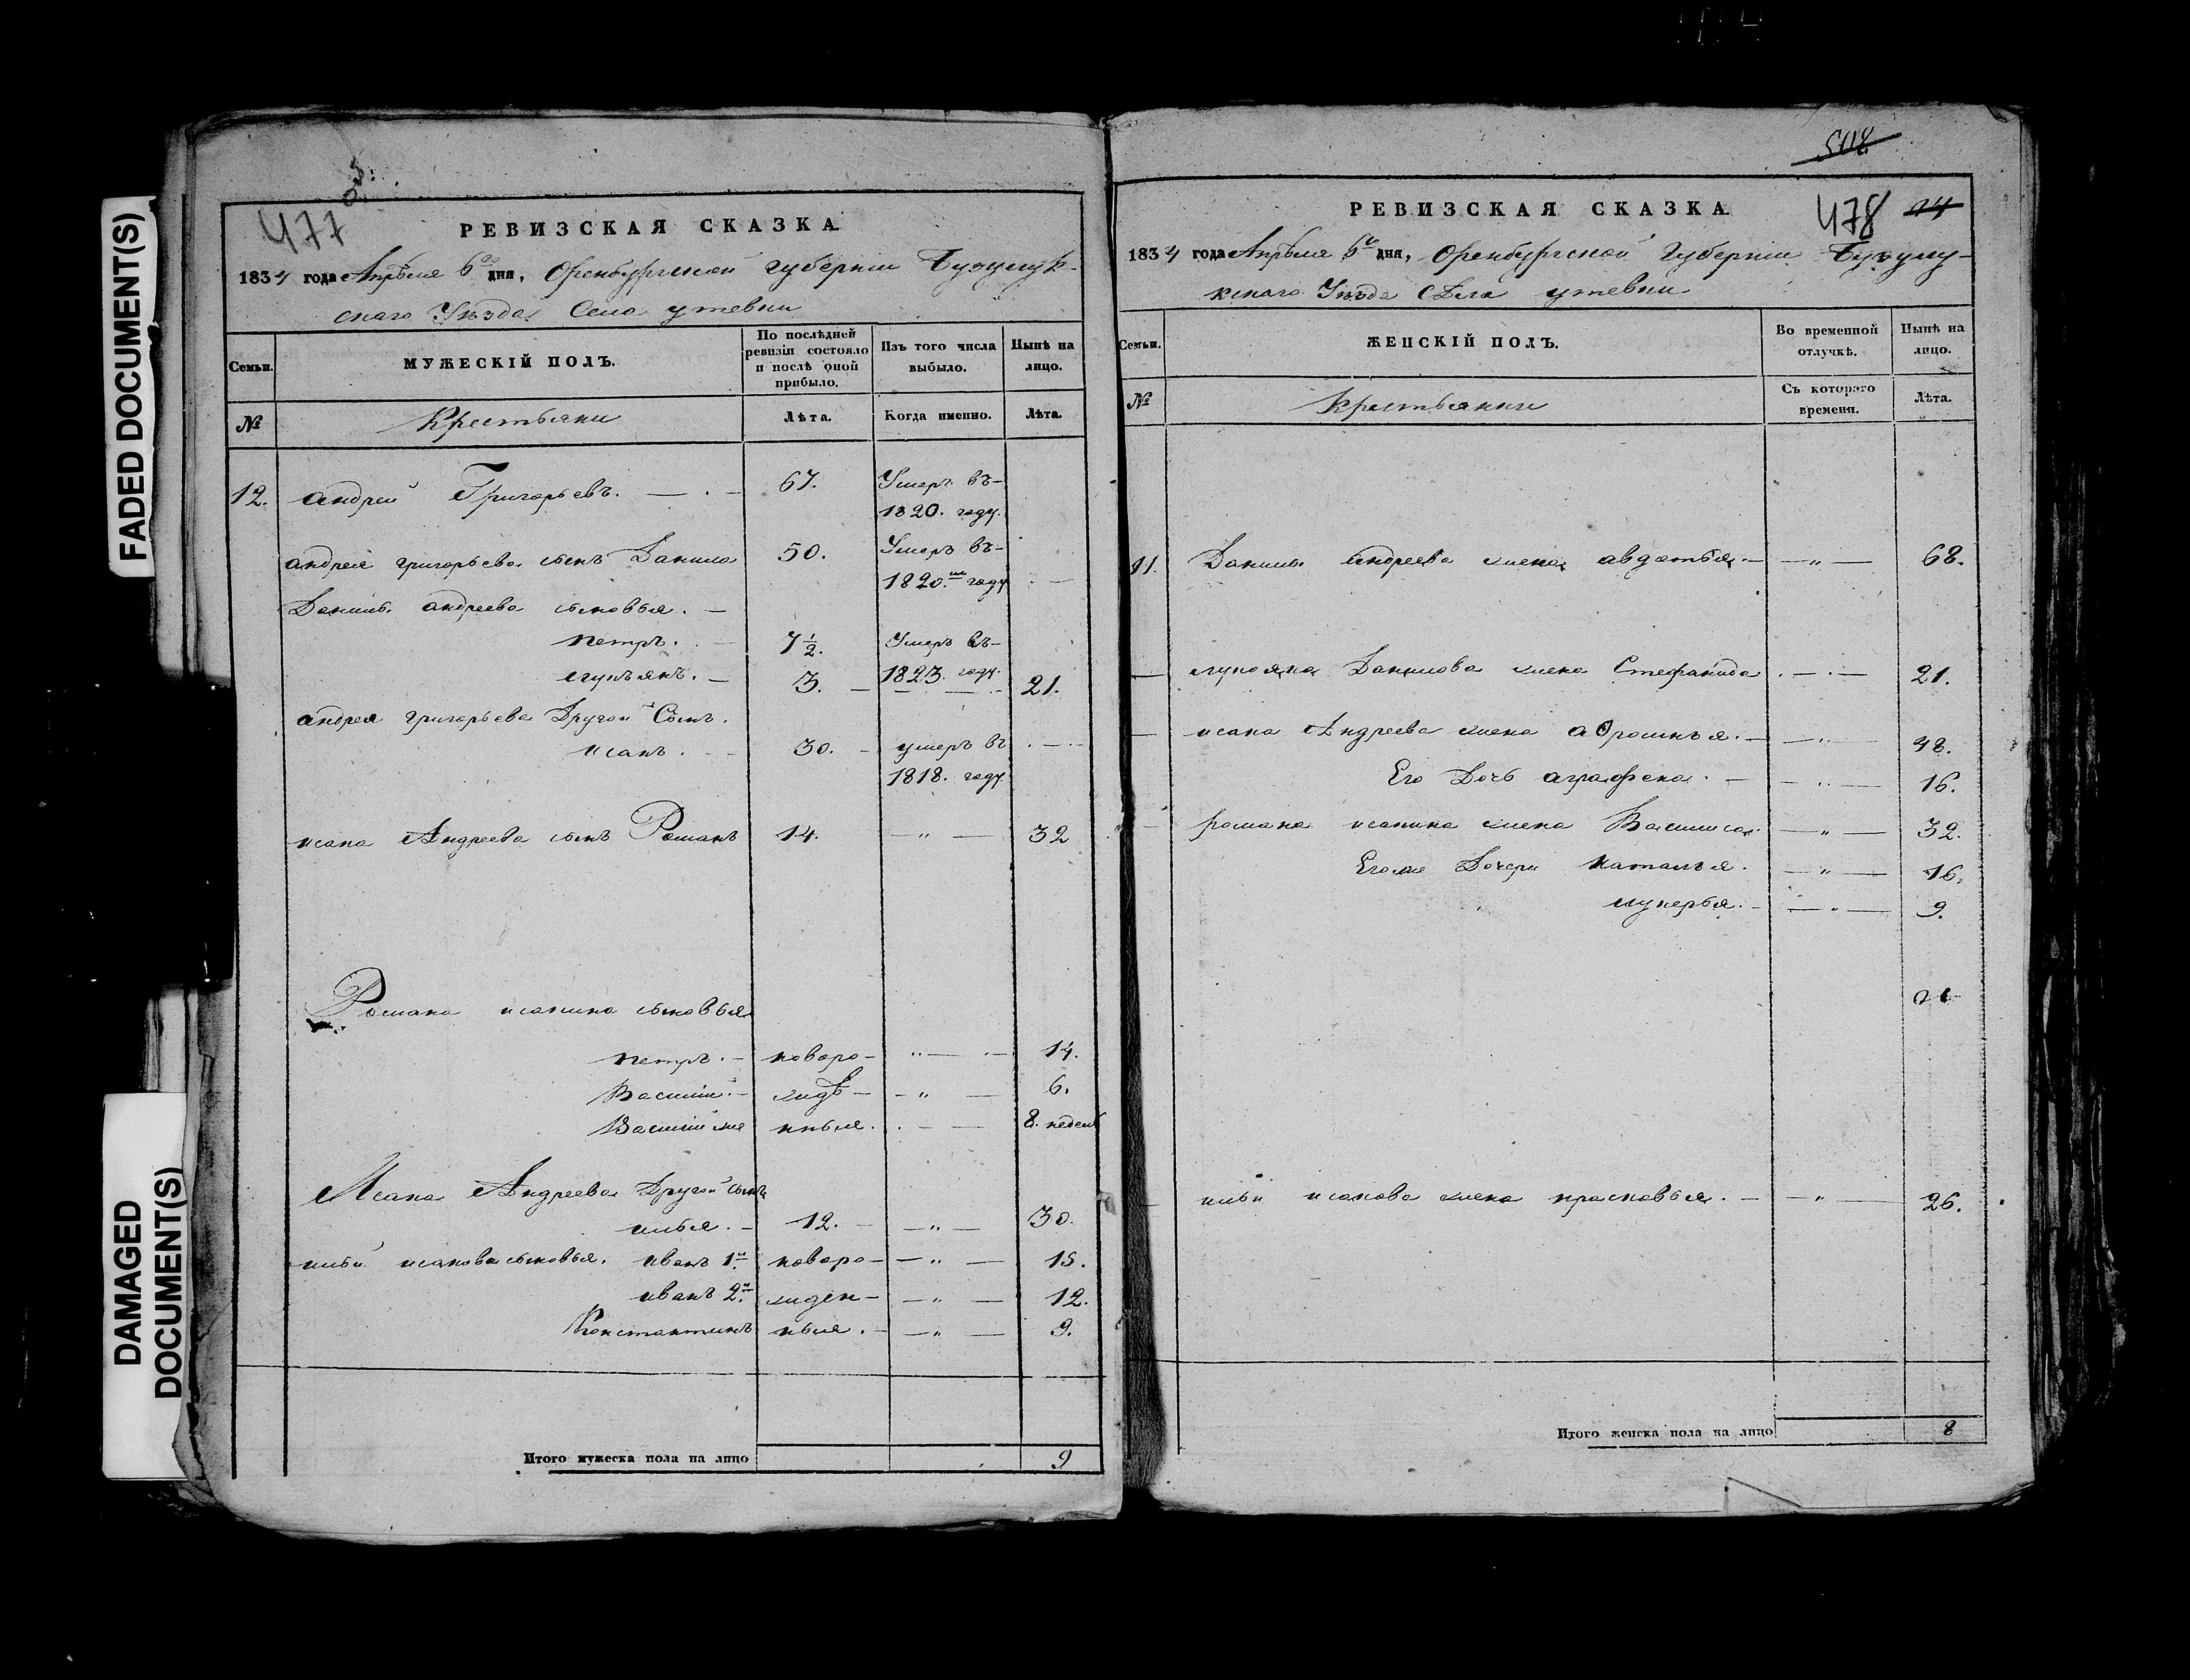 FADED DOCUMENT(S)
DAMAGED
DOCUMENT(S)
477
РЕВИЗСКАЯ СКАЗКА
1834 года Апреля 6го дня, Оренбургской губернии Бузулук-
скаго Уезда Села утевки
Семьи.
МУЖЕСКІЙ ПОЛЪ.
По послѣдней
ревизіи состояло
и послѣ оной
прибыло.
Изъ того числа
выбыло.
Нынѣ на
лицо.
№
Крестьяни
Лѣта.
Когда именно.
Лѣта.
12. андреи Григорьевъ. 67. Умеръ въ-
1820. году.
андрея григорьева сынъ Данила 50. Умеръ въ-
1820. году
Данилы андреева сыновья.
петръ. 7 1/2. Умеръ въ-
1823. году.
лупъянъ. 3. 21.
андрея григорьева Другой Сынъ.
исакъ. 30. умеръ въ
1818. году.
исака Андреева сынъ Романъ 14. " 32
Романа исакина сыновья
петръ. новоро- " 14.
Василий. жде- " 6.
Василий же нныя. 8. недель
Исака Андреева Другой сынъ
илья. 12. " 30.
ильи исакова сыновья. иванъ 1й новоро- " 15.
иванъ 2й. жден- " 12.
Константинъ ныя. " 9.
Итого мужеска пола на лицо 9
508
РЕВИЗСКАЯ СКАЗКА
478 14
1834 года Апреля 6го дня, Оренбургской Губернии Бузулу-
кскаго Уезда Села утевки
Семьи.
ЖЕНСКІЙ ПОЛЪ.
Во временной
отлучкѣ.
Нынѣ на
лицо.
№
Крестьянки
Съ котораго
времени.
Лѣта.
11. Данилы андреева жена авдатья " 68.
лупояна Данилова жена Стефанида 21.
исака Андреева жена афросинья. " 48.
Его Дочь аграфена. " 16.
романа исакина жена Василиса. " 32.
Егоже Дочери наталья. " 16.
лукерья. " 9.
ильи исакова жена прасковья. " 26.
Итого женска пола на лицо 8